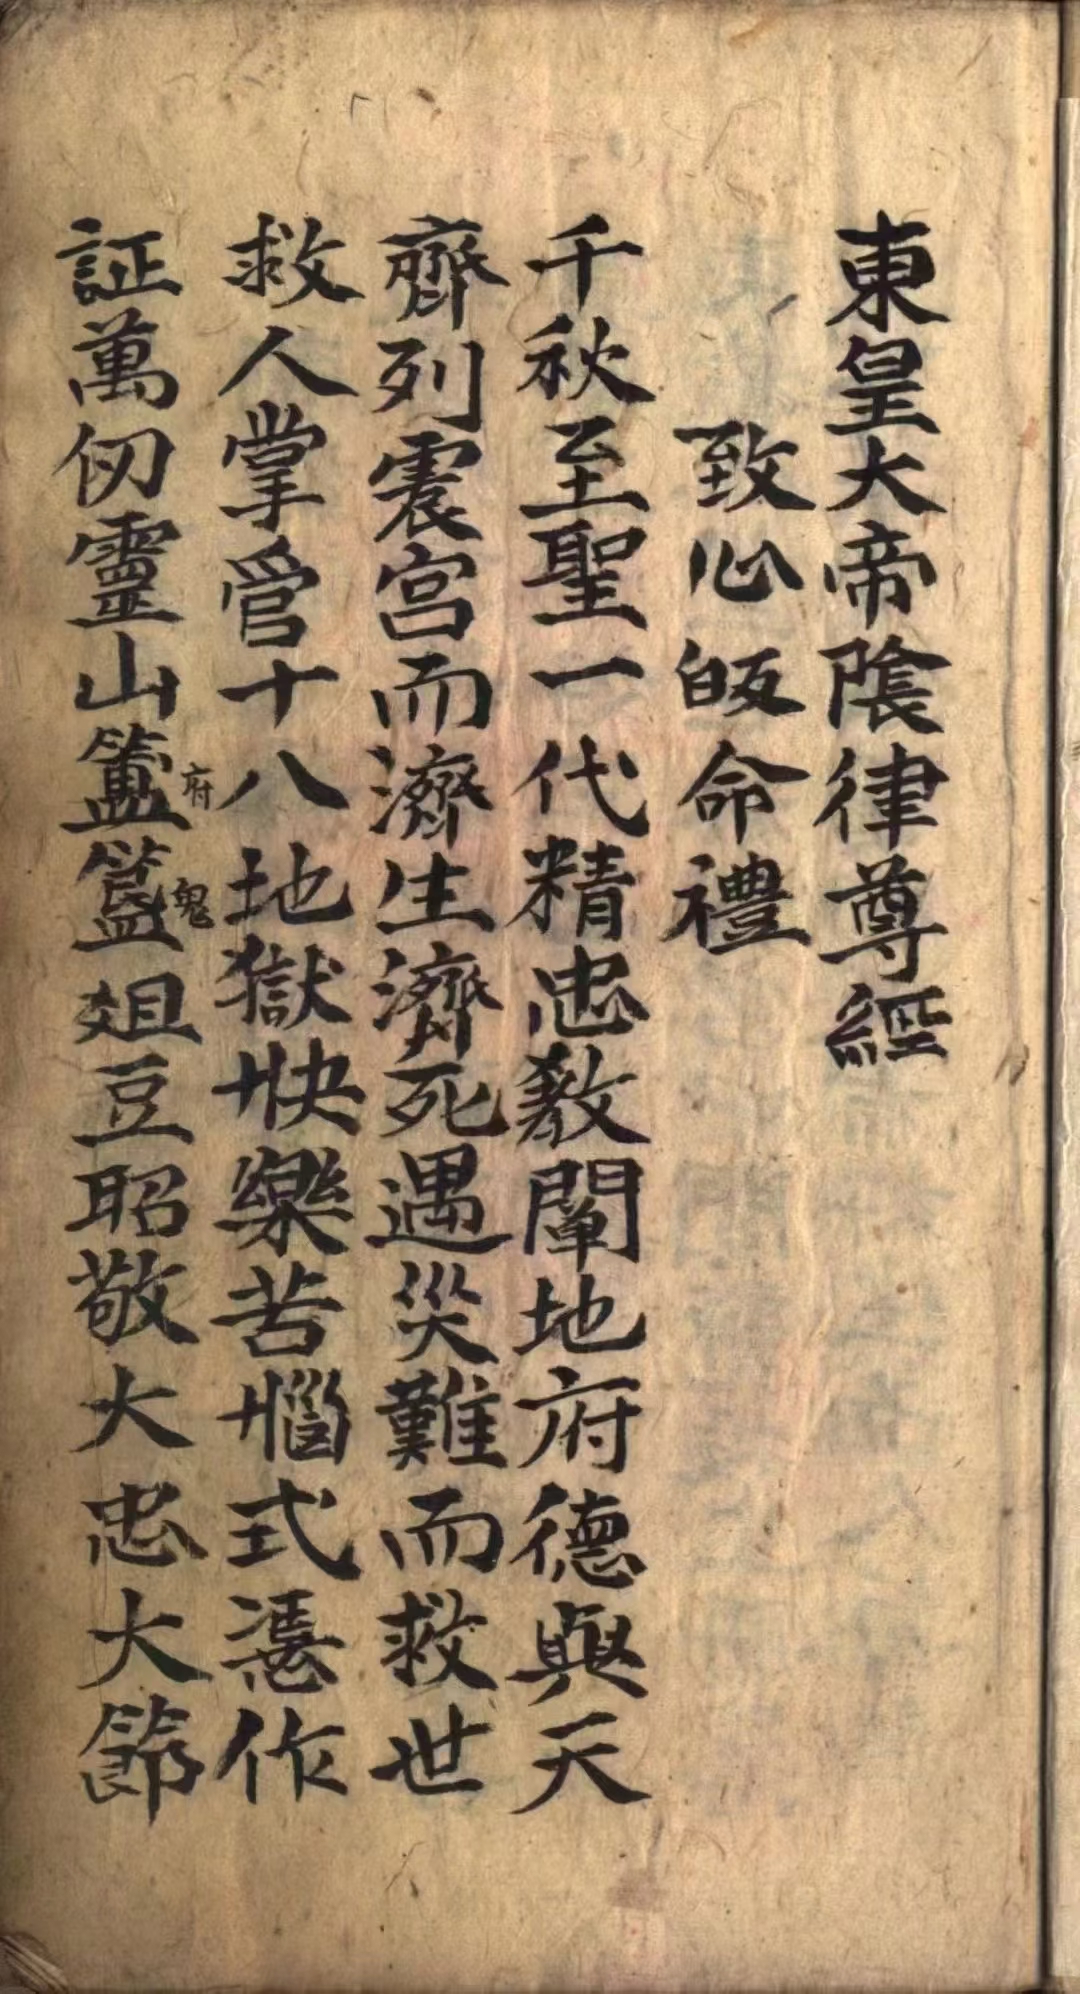 東皇大帝陰律尊經
致心皈命禮
千秋至聖一代精忠教闡地府德與天
齊列震宮而濟生濟死遇災難而救世
救人掌管十八地獄快樂苦惱式憑作
証萬仞靈山簠簋俎豆昭敬大忠大節
府
鬼